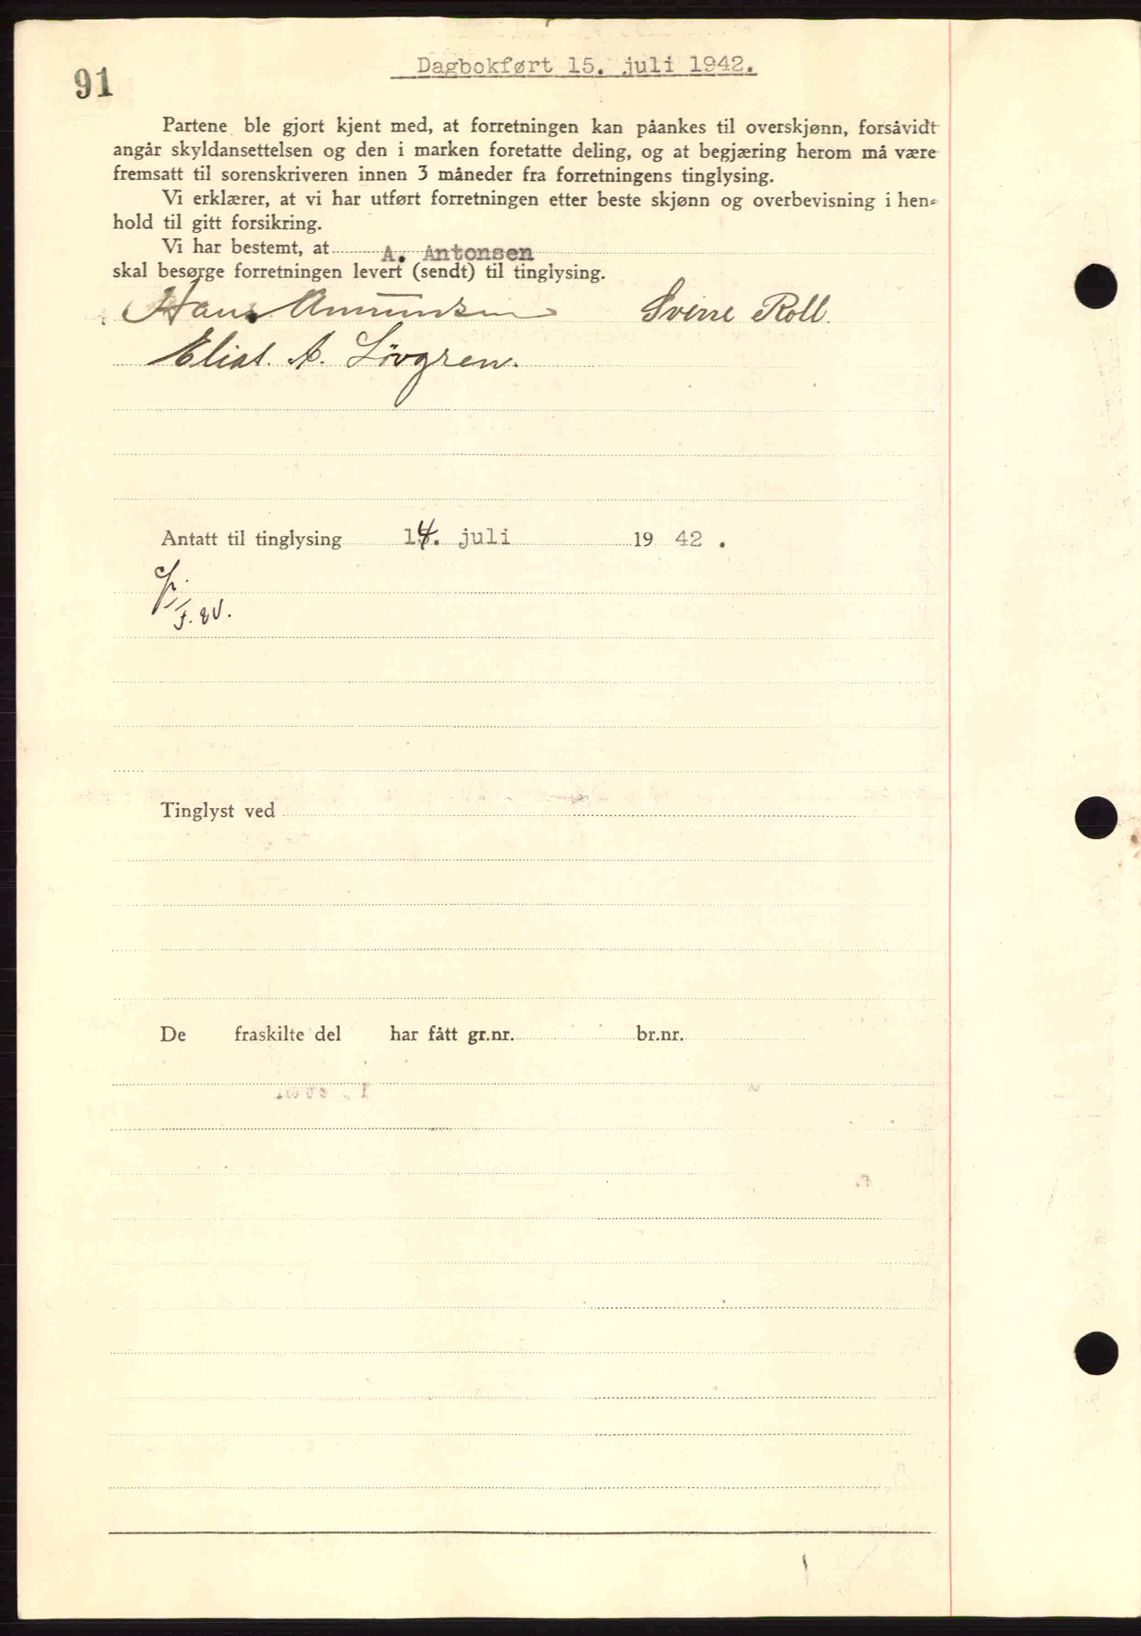 91
Dagbokført 15. juli 1942.
Partene ble gjort kjent med, at forretningen kan påankes til overskjønn, forsåvidt
angår skyldansettelsen og den i marken foretatte deling, og at begjæring herom må være
fremsatt til sorenskriveren innen 3 måneder fra forretningens tinglysing.
Vi erklærer, at vi har utført forretningen etter beste skjønn og overbevisning i hen-
hold til gitt forsikring.
Vi har bestemt, at A. Antonsen
skal besørge forretningen levert (sendt) til tinglysing.
Hans Amundsen Sverre Roll.
Elias. A. Lövgren.
Antatt til tinglysing 14. juli 1942.
Tinglyst ved
De fraskilte del har fått gr.nr. br.nr.